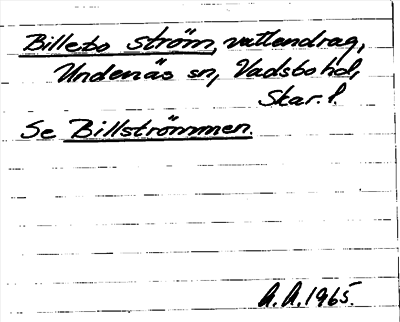 Billebo ström, vattendrag,
Undenäs sn, Vadsbo hd,
Skar. l.
Se Billströmmen.
A. A. 1965.